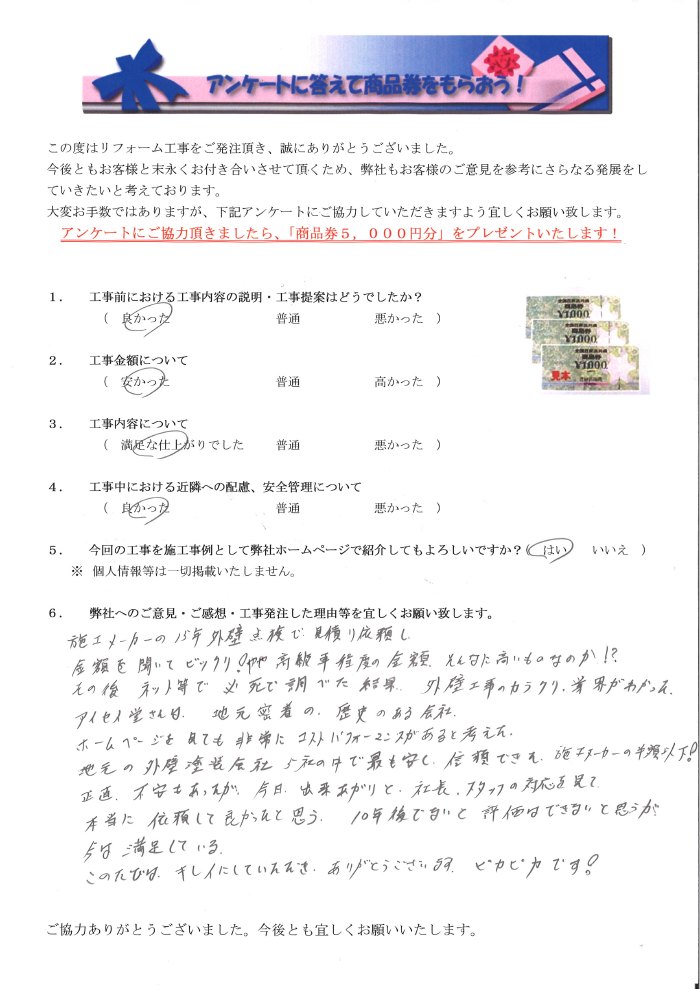 アンケートに答えて商品券をもらおう！
この度はリフォーム工事をご発注頂き、誠にありがとうございました。
今後ともお客様と末永くお付き合いさせて頂くため、弊社もお客様のご意見を参考にさらなる発展をし
ていきたいと考えております。
大変お手数ではありますが、下記アンケートにご協力していただきますよう宜しくお願い致します。
アンケートにご協力頂きましたら、「商品券５，０００円分」をプレゼントいたします！
１．　工事前における工事内容の説明・工事提案はどうでしたか？
（　良かった　普通　悪かった　）
２．　工事金額について
（　安かった　普通　高かった　）
３．　工事内容について
（　満足な仕上がりでした　普通　悪かった　）
４．　工事中における近隣への配慮、安全管理について
（　良かった　普通　悪かった　）
５．　今回の工事を施工事例として弊社ホームページで紹介してもよろしいですか？（　はい　いいえ　）
※　個人情報等は一切掲載いたしません。
¥1,000
¥1,000
¥1,000
見本
６．　弊社へのご意見・ご感想・工事発注した理由等を宜しくお願い致します。
施工メーカーの15年外壁点検で見積り依頼し
金額を聞いてビックリ！高級車程度の金額、そんなに高いものなのか！？
その後 ネット等で必死で調べた結果、外壁工事のカラクリ、業界がわかった。
アイセイ堂さんは、地元密着の、歴史のある会社。
ホームページを見ても非常にコストパフォーマンスがあると考えた。
地元の外壁塗装会社 5社の中で最も安し、信頼できた。施工メーカーの半額以下！
正直、不安もあったが、今日、出来あがりと、社長、スタッフの対応を見て、
本当に依頼して良かったと思う。10年後でないと評価はできないと思うが
今は満足している。
このたびは、キレイにしていただき、ありがとうございます。ピカピカです！
ご協力ありがとうございました。今後とも宜しくお願いいたします。